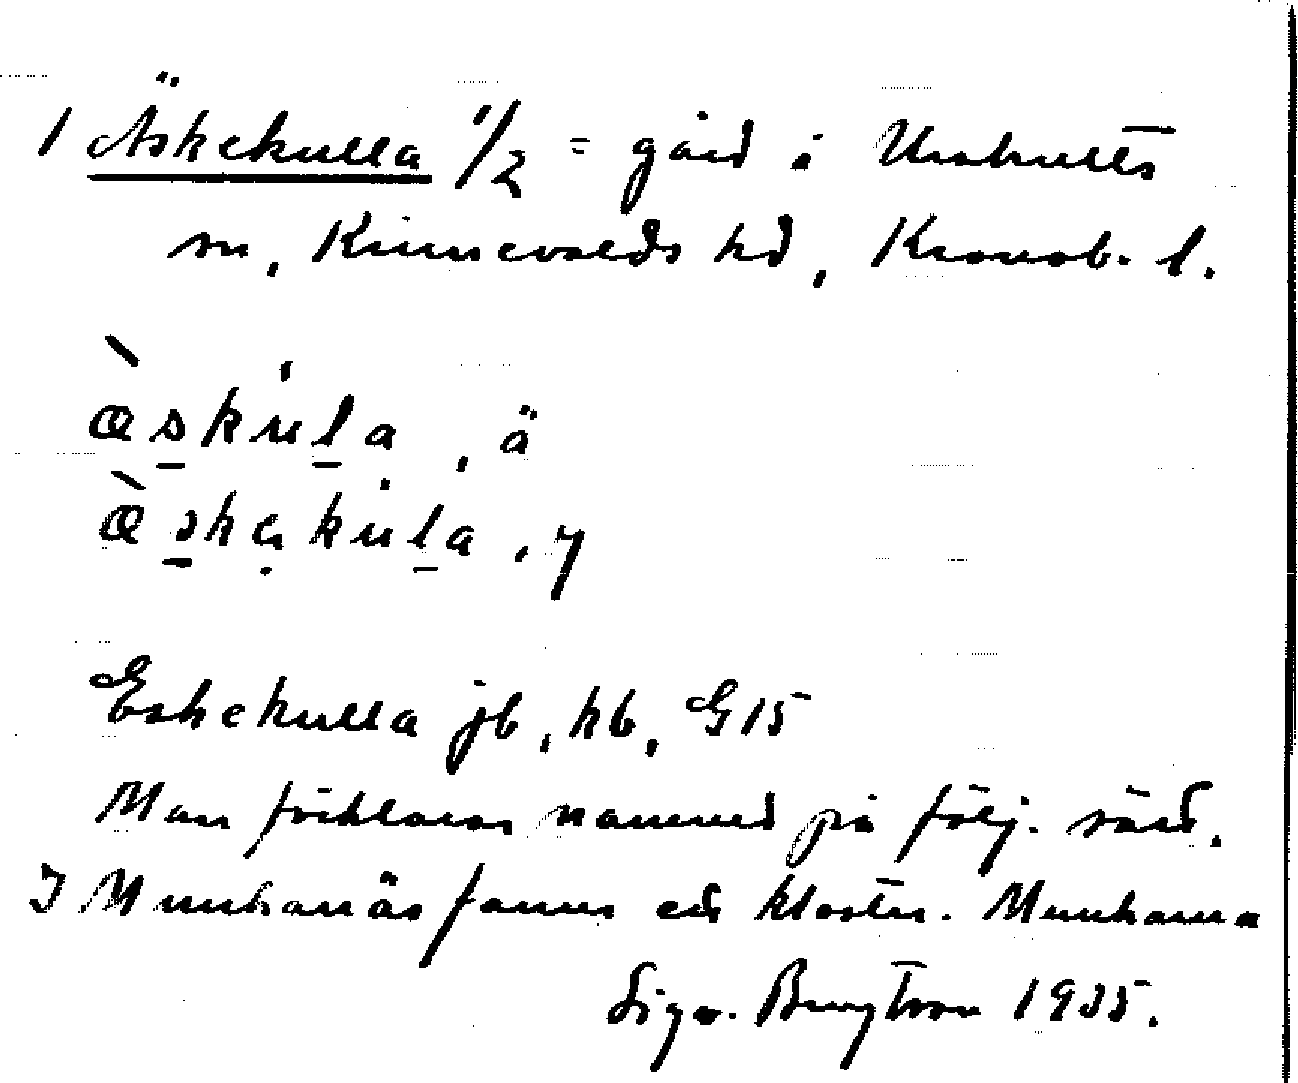 1 Äskekulla 1/2 = gård i Urshults
sn, Kinnevalds hd, Kronob. l.
æ̀skúla, ä
æ̀skakúla, y
Eskekulla jb, hb, G15
Man förklarar namnet på följ. sätt.
I Munkanäs fanns ett kloster. Munkarna
Sigv. Bengtson 1935.